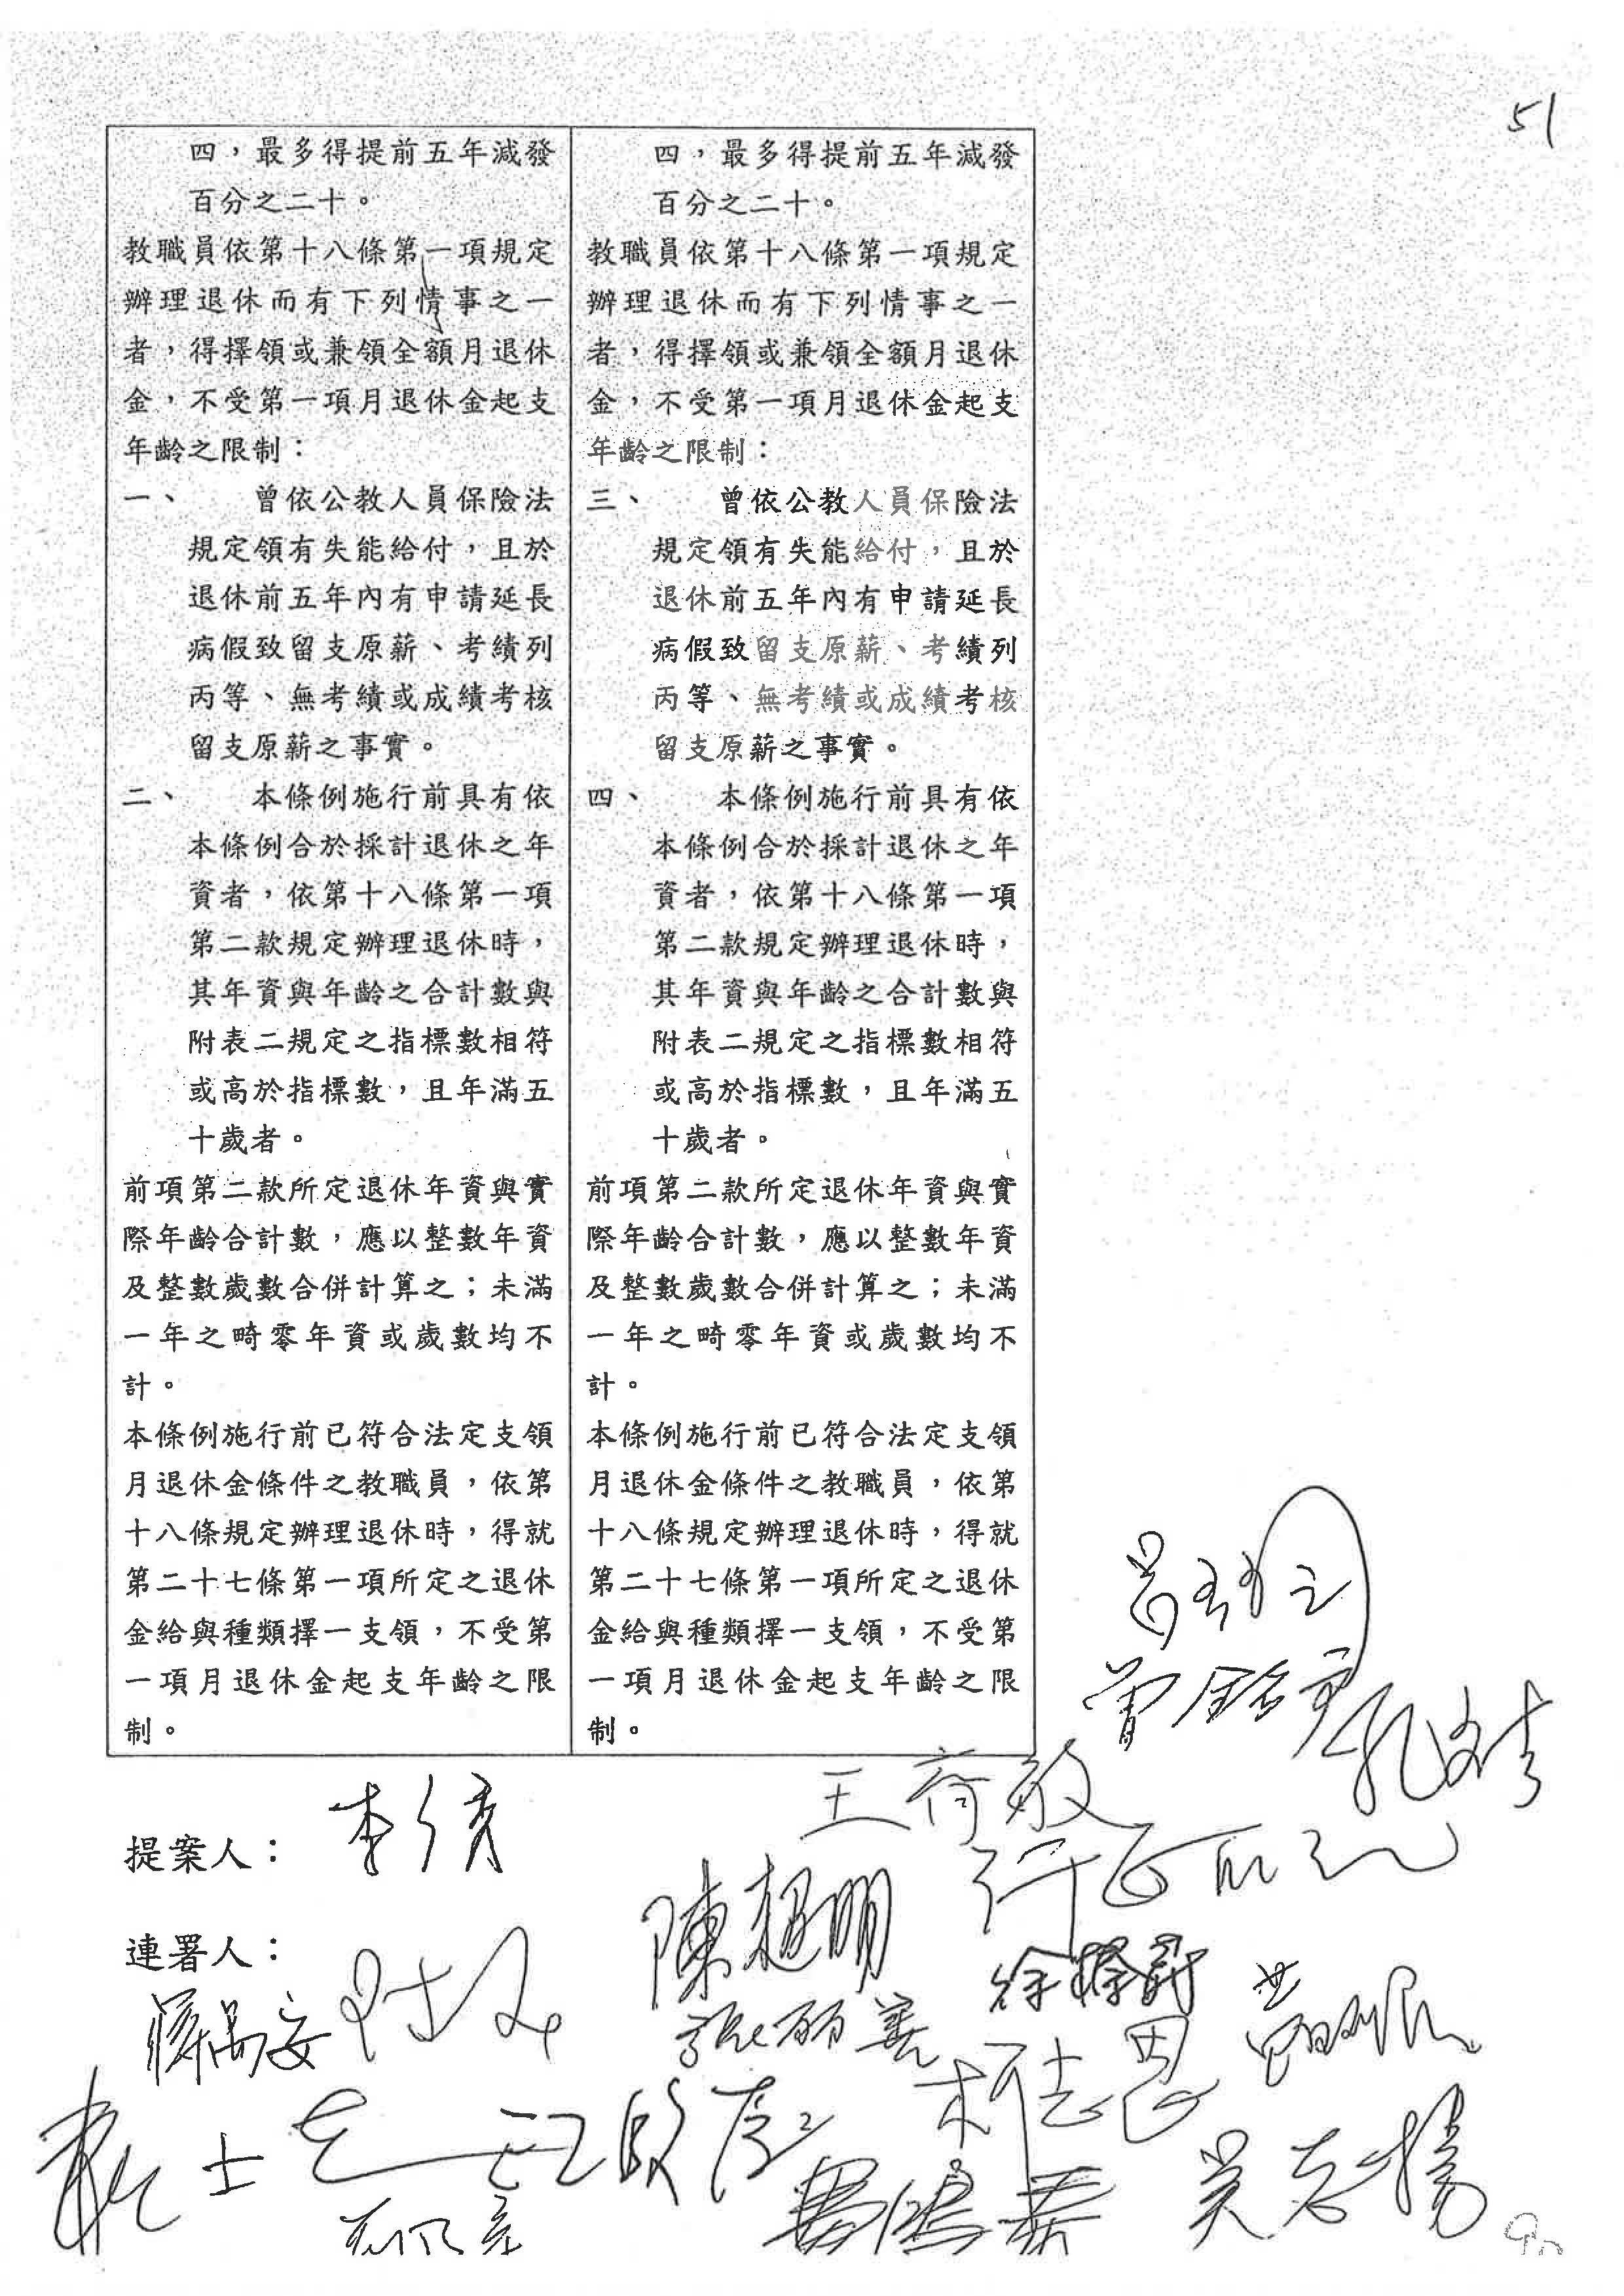 51
四，最多得提前五年減發
百分之二十。
教職員依第十八條第一項規定
辦理退休而有下列情事之一
者，得擇領或兼領全額月退休
金，不受第一項月退休金起支
年齡之限制：
一、 曾依公教人員保險法
規定領有失能給付，且於
退休前五年內有申請延長
病假致留支原薪、考績列
丙等、無考績或成績考核
留支原薪之事實。
二、 本條例施行前具有依
本條例合於採計退休之年
資者，依第十八條第一項
第二款規定辦理退休時，
其年資與年齡之合計數與
附表二規定之指標數相符
或高於指標數，且年滿五
十歲者。
前項第二款所定退休年資與實
際年齡合計數，應以整數年資
及整數歲數合併計算之；未滿
一年之畸零年資或歲數均不
計。
本條例施行前已符合法定支領
月退休金條件之教職員，依第
十八條規定辦理退休時，得就
第二十七條第一項所定之退休
金給與種類擇一支領，不受第
一項月退休金起支年齡之限
制。
四，最多得提前五年減發
百分之二十。
教職員依第十八條第一項規定
辦理退休而有下列情事之一
者，得擇領或兼領全額月退休
金，不受第一項月退休金起支
年齡之限制：
三、 曾依公教人員保險法
規定領有失能給付，且於
退休前五年內有申請延長
病假致留支原薪、考績列
丙等、無考績或成績考核
留支原薪之事實。
四、 本條例施行前具有依
本條例合於採計退休之年
資者，依第十八條第一項
第二款規定辦理退休時，
其年資與年齡之合計數與
附表二規定之指標數相符
或高於指標數，且年滿五
十歲者。
前項第二款所定退休年資與實
際年齡合計數，應以整數年資
及整數歲數合併計算之；未滿
一年之畸零年資或歲數均不
計。
本條例施行前已符合法定支領
月退休金條件之教職員，依第
十八條規定辦理退休時，得就
第二十七條第一項所定之退休
金給與種類擇一支領，不受第
一項月退休金起支年齡之限
制。
呂玉玲
曾銘宗
孔文吉
王育敏
提案人：
陳超明
連署人：
徐榛蔚
蔣萬安
張麗善
柯志恩
黃昭順
費鴻泰
吳志揚